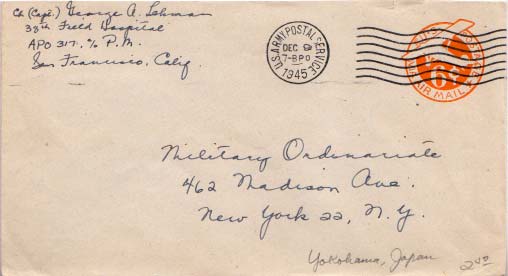 Ch (Capt.) George A. Lehman
38th Field Hospital
APO 317, c/o P.M.
San Francisco, Calif.
U.S. ARMY POSTAL SERVICE
DEC 9
7-8 PM
1945
6¢
AIR MAIL
Military Ordinariate
462 Madison Ave.
New York 22, N.Y.
Yokohama, Japan